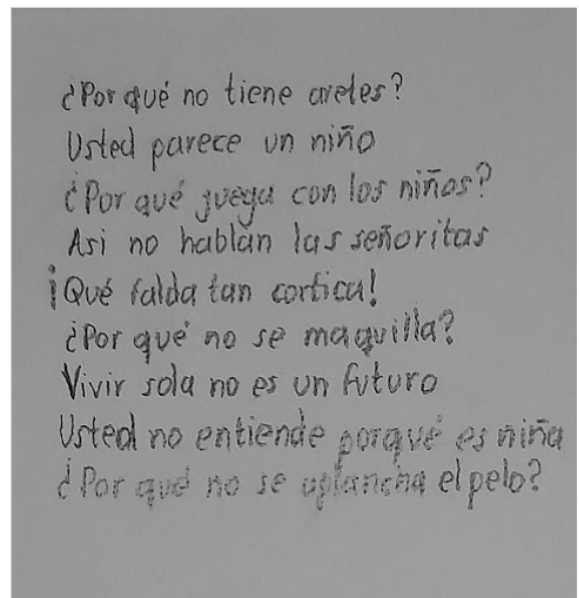 ¿Por qué no tiene aretes?
Usted parece un niño
¿Por qué juega con los niños?
Asi no hablan las señoritas
¡Qué falda tan cortica!
¿Por qué no se maquilla?
Vivir sola no es un futuro
Usted no entiende porqué es niña
¿Por qué no se aplancha el pelo?